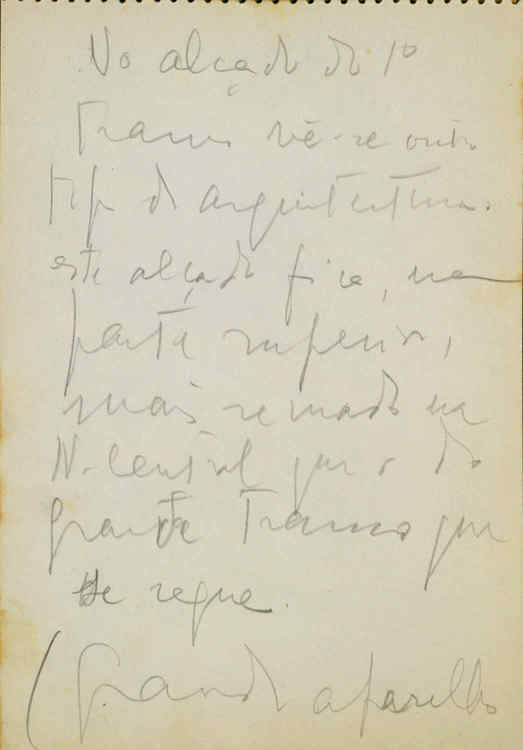 No alçado do 1º
tramo vê-se outro
tipo de arquitectura.
este alçado fica, na
parte superior,
mais remado na
N. Central que o do
grande tramo que
se segue.
(Grande aparelho